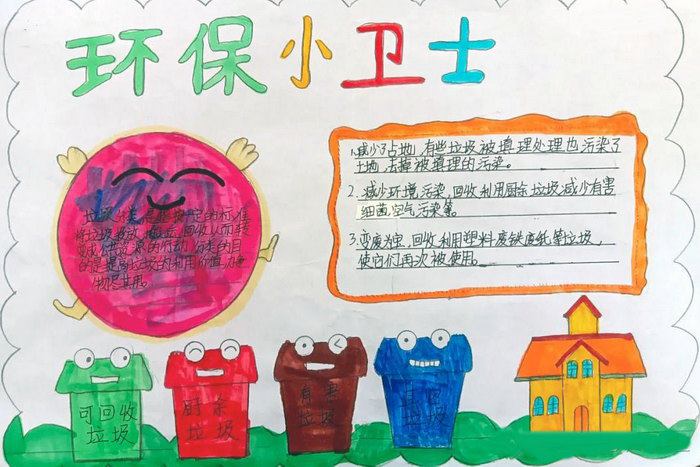 环保小卫士
垃圾分类是指按一定的标准
将垃圾投放、搬运、回收从而转
变成公共资源的行动,分类的目
的是提高垃圾的利用价值,力争
物尽其用。
1.减少了占地,有些垃圾被填理处理也污染了
土地,去掉被填理的污染。
2.减少环境污染,回收利用厨余垃圾减少有害
细菌,空气污染等。
3.变废为宝,回收利用塑料废铁废纸等垃圾,
使它们再次被使用。
可回收
垃圾
厨余
垃圾
有害
垃圾
其它
垃圾